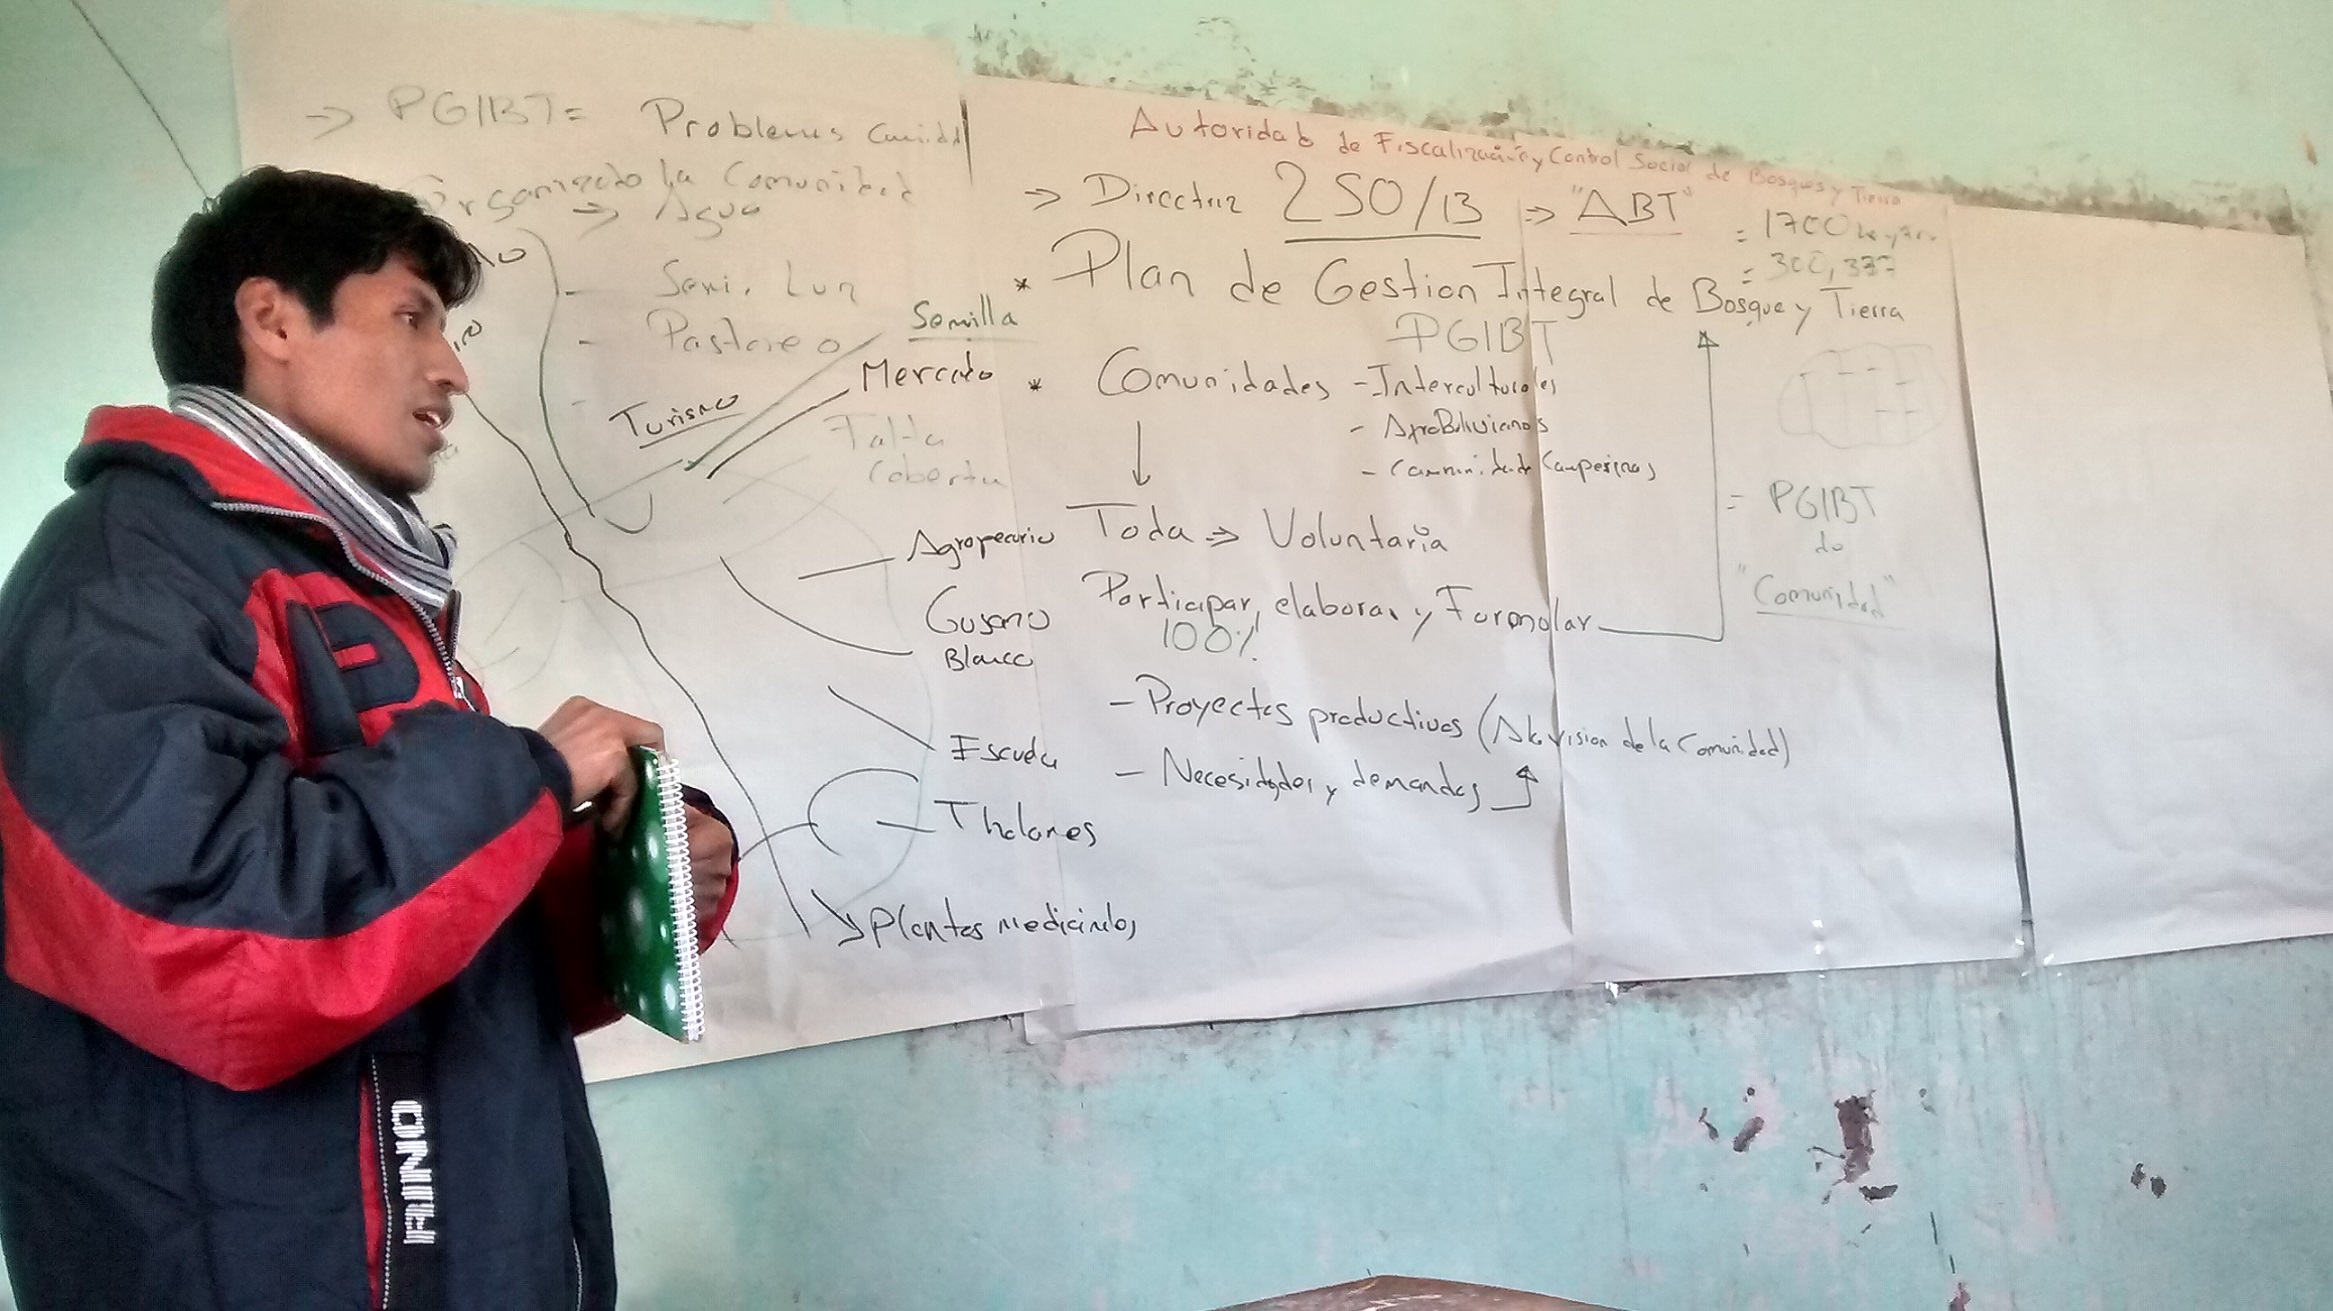 → PGIBT = Problemas
Organizado la Comunidad
→ Agua
- Semi. Luz
- Pastoreo
Semilla
Mercado
Turismo
Falta
Cobertu
Agropecurio
Gusano
Blanco
Escuela
Tholares
Plantas medicinales
Autoridad de Fiscalización y Control Social de Bosques y Tierra
→ Directriz 250/13 ⇒ "ABT"
= 1700
= 300,337
* Plan de Gestion Integral de Bosque y Tierra
PGIBT
* Comunidades - Interculturales
- AfroBolivianos
- Comunidade Campesinas
Toda ⇒ Voluntaria
Participar, elaborar y Formular
100%
- Proyectos productivos (A la vision de la Comunidad)
- Necesidades y demandas
= PGIBT
do
"Comunidad"